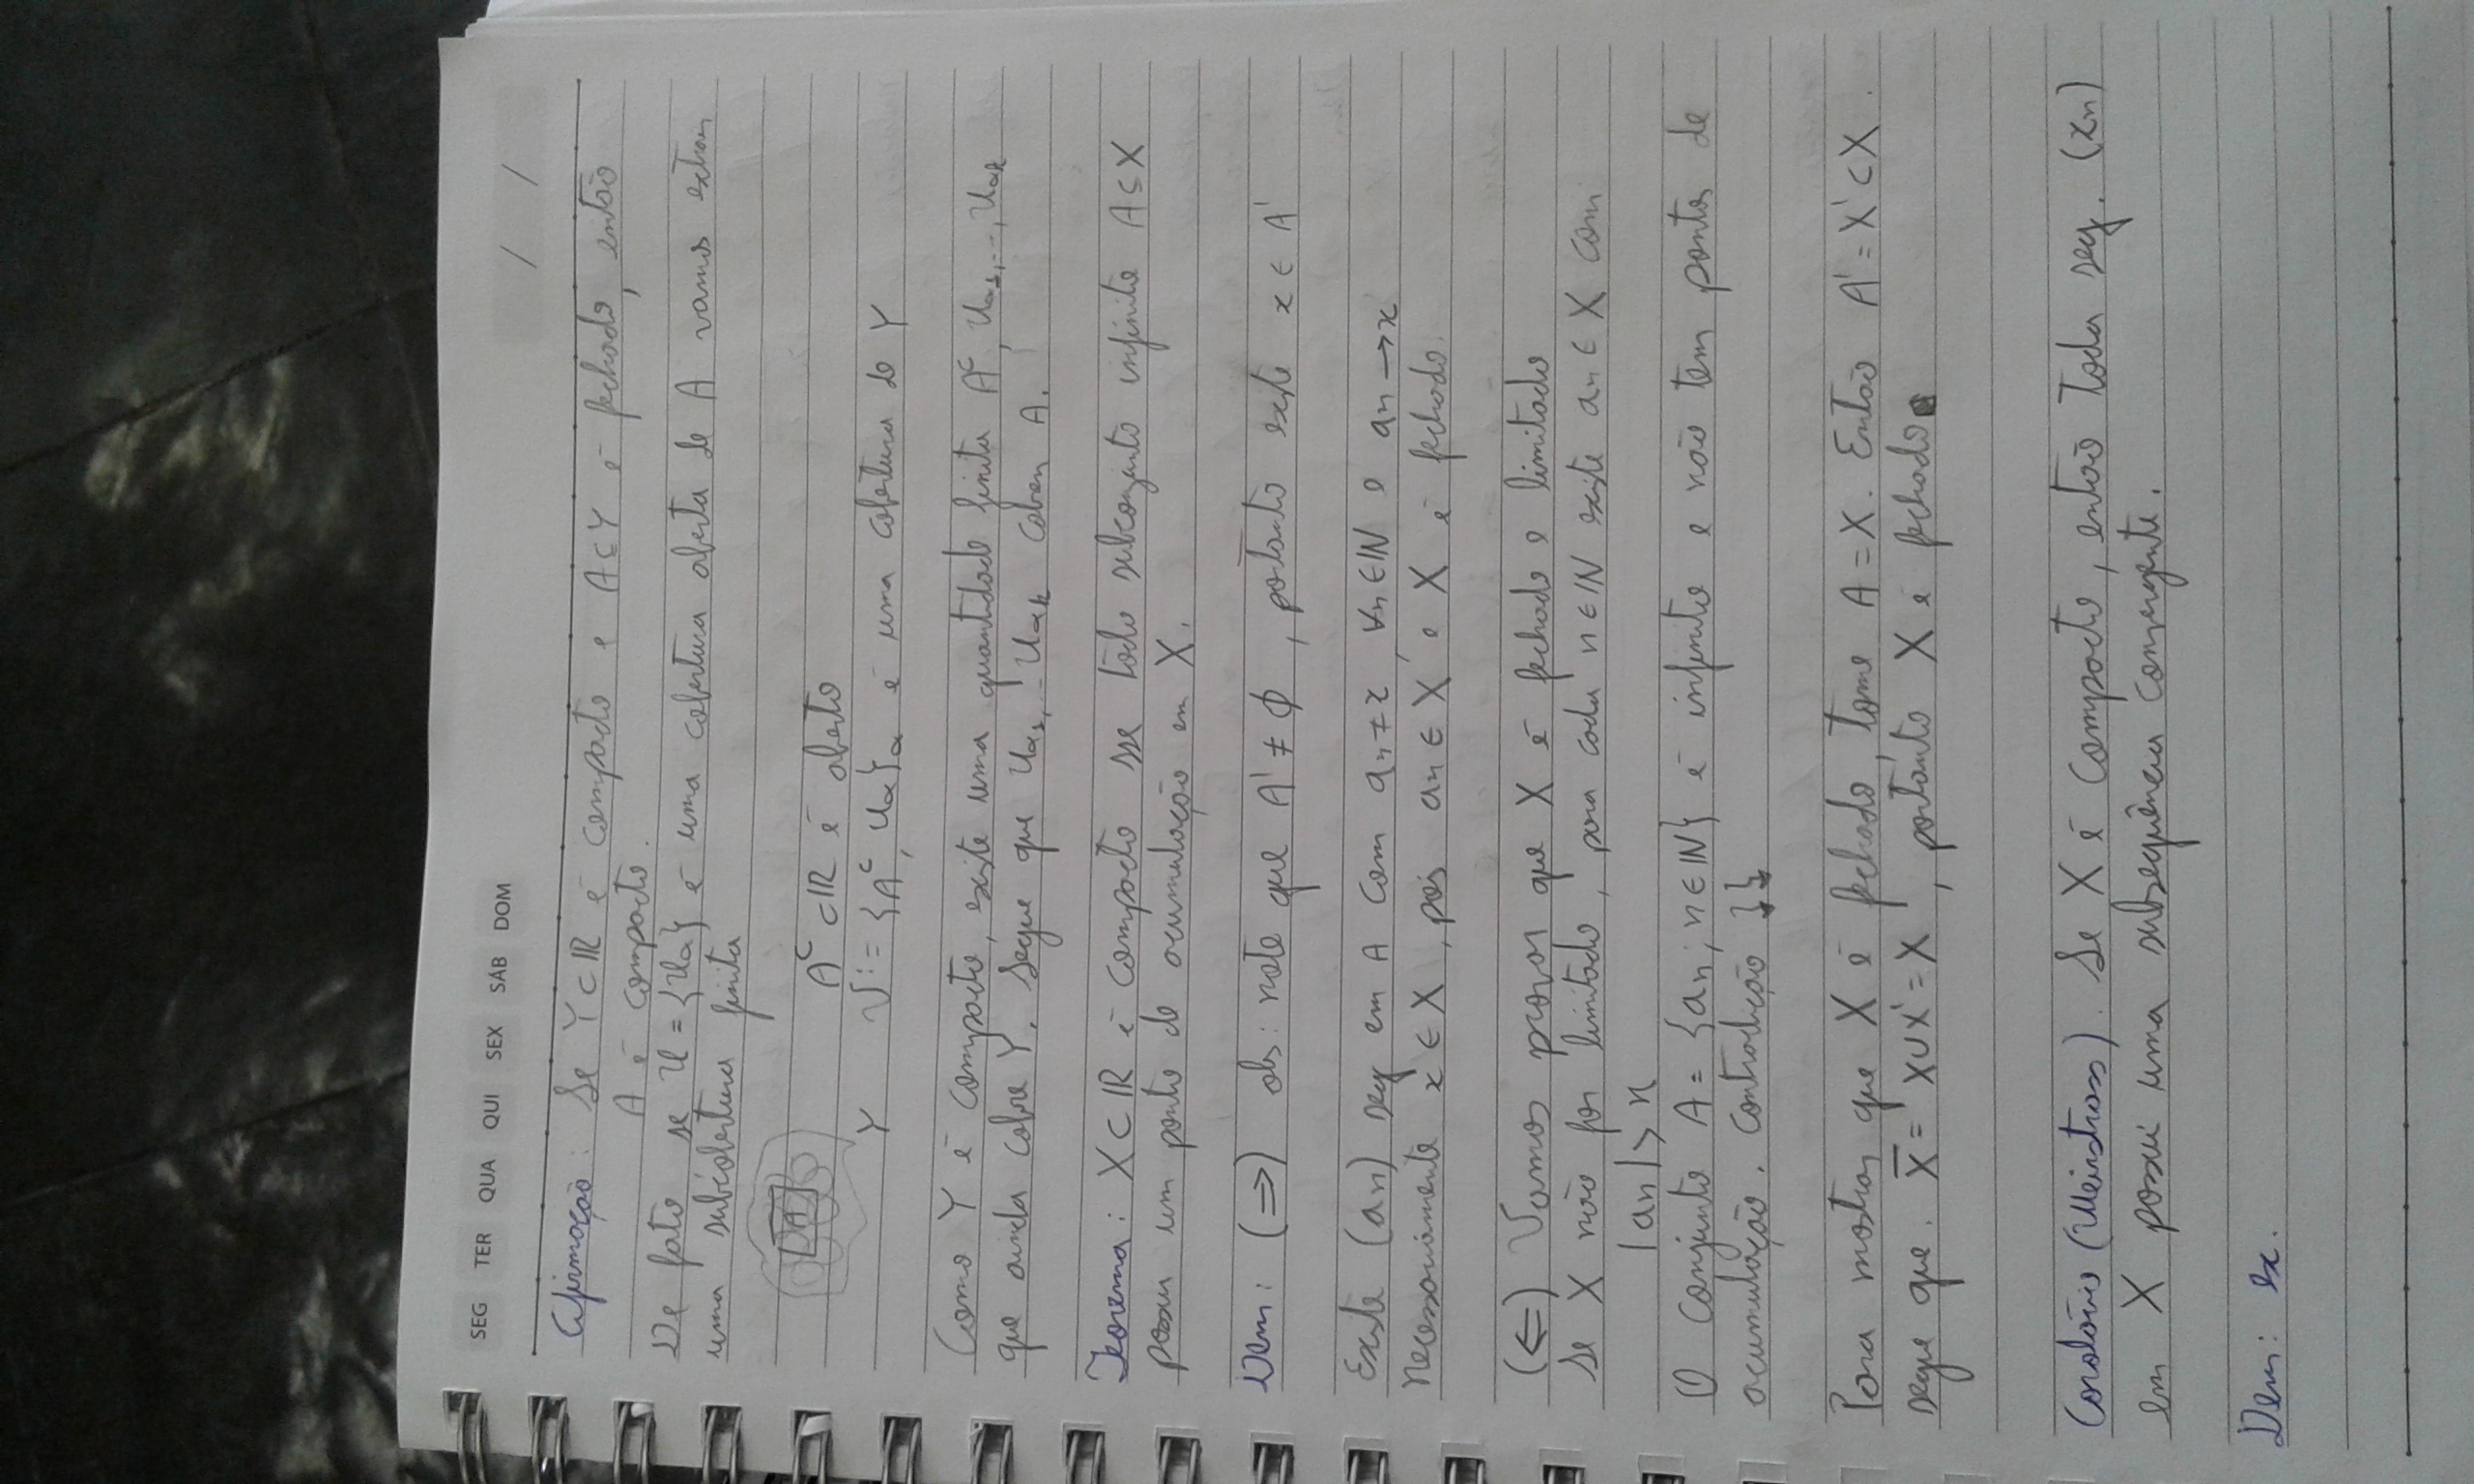 SEG TER QUA QUI SEX SÁB DOM
/ /
Afirmação: Se Y⊂ℝ é compacto e A⊆Y é fechado, então
A é compacto.
De fato se U = {Uα} é uma cobertura aberta de A vamos extrair
uma subcobertura finita
A
Aᶜ ⊂ℝ é aberto
Y V := {Aᶜ, Uα}α é uma cobertura de Y
Como Y é compacto, existe uma quantidade finita Aᶜ, Uα₁,..., Uαk
que ainda cobre Y. Segue que Uα₁,... Uαk cobrem A.
Teorema: X⊂ℝ é compacto sse todo subconjunto infinito A⊆X
possui um ponto de acumulação em X.
Dem: (⇒) obs: note que A' ≠ ϕ, portanto existe x ∈ A'
Existe (an) seq em A com an≠x, ∀n∈ℕ e an→x
necessariamente x ∈ X, pois an ∈ X e X é fechado.
(⇐) Vamos provar que X é fechado e limitado
Se X não for limitado, para cada n∈ℕ existe an ∈ X com
|an|> n
O conjunto A = {an; n∈ℕ} é infinito e não tem pontos de
acumulação. Contradição
Para mostrar que X é fechado, tome A = X. Então A' = X' ⊂ X.
segue que. X̅ = X∪X' = X, portanto X é fechado
Corolário (Weirstrass). Se X é compacto, então toda seq. (xn)
em X possui uma subsequência convergente.
Dem: ex.